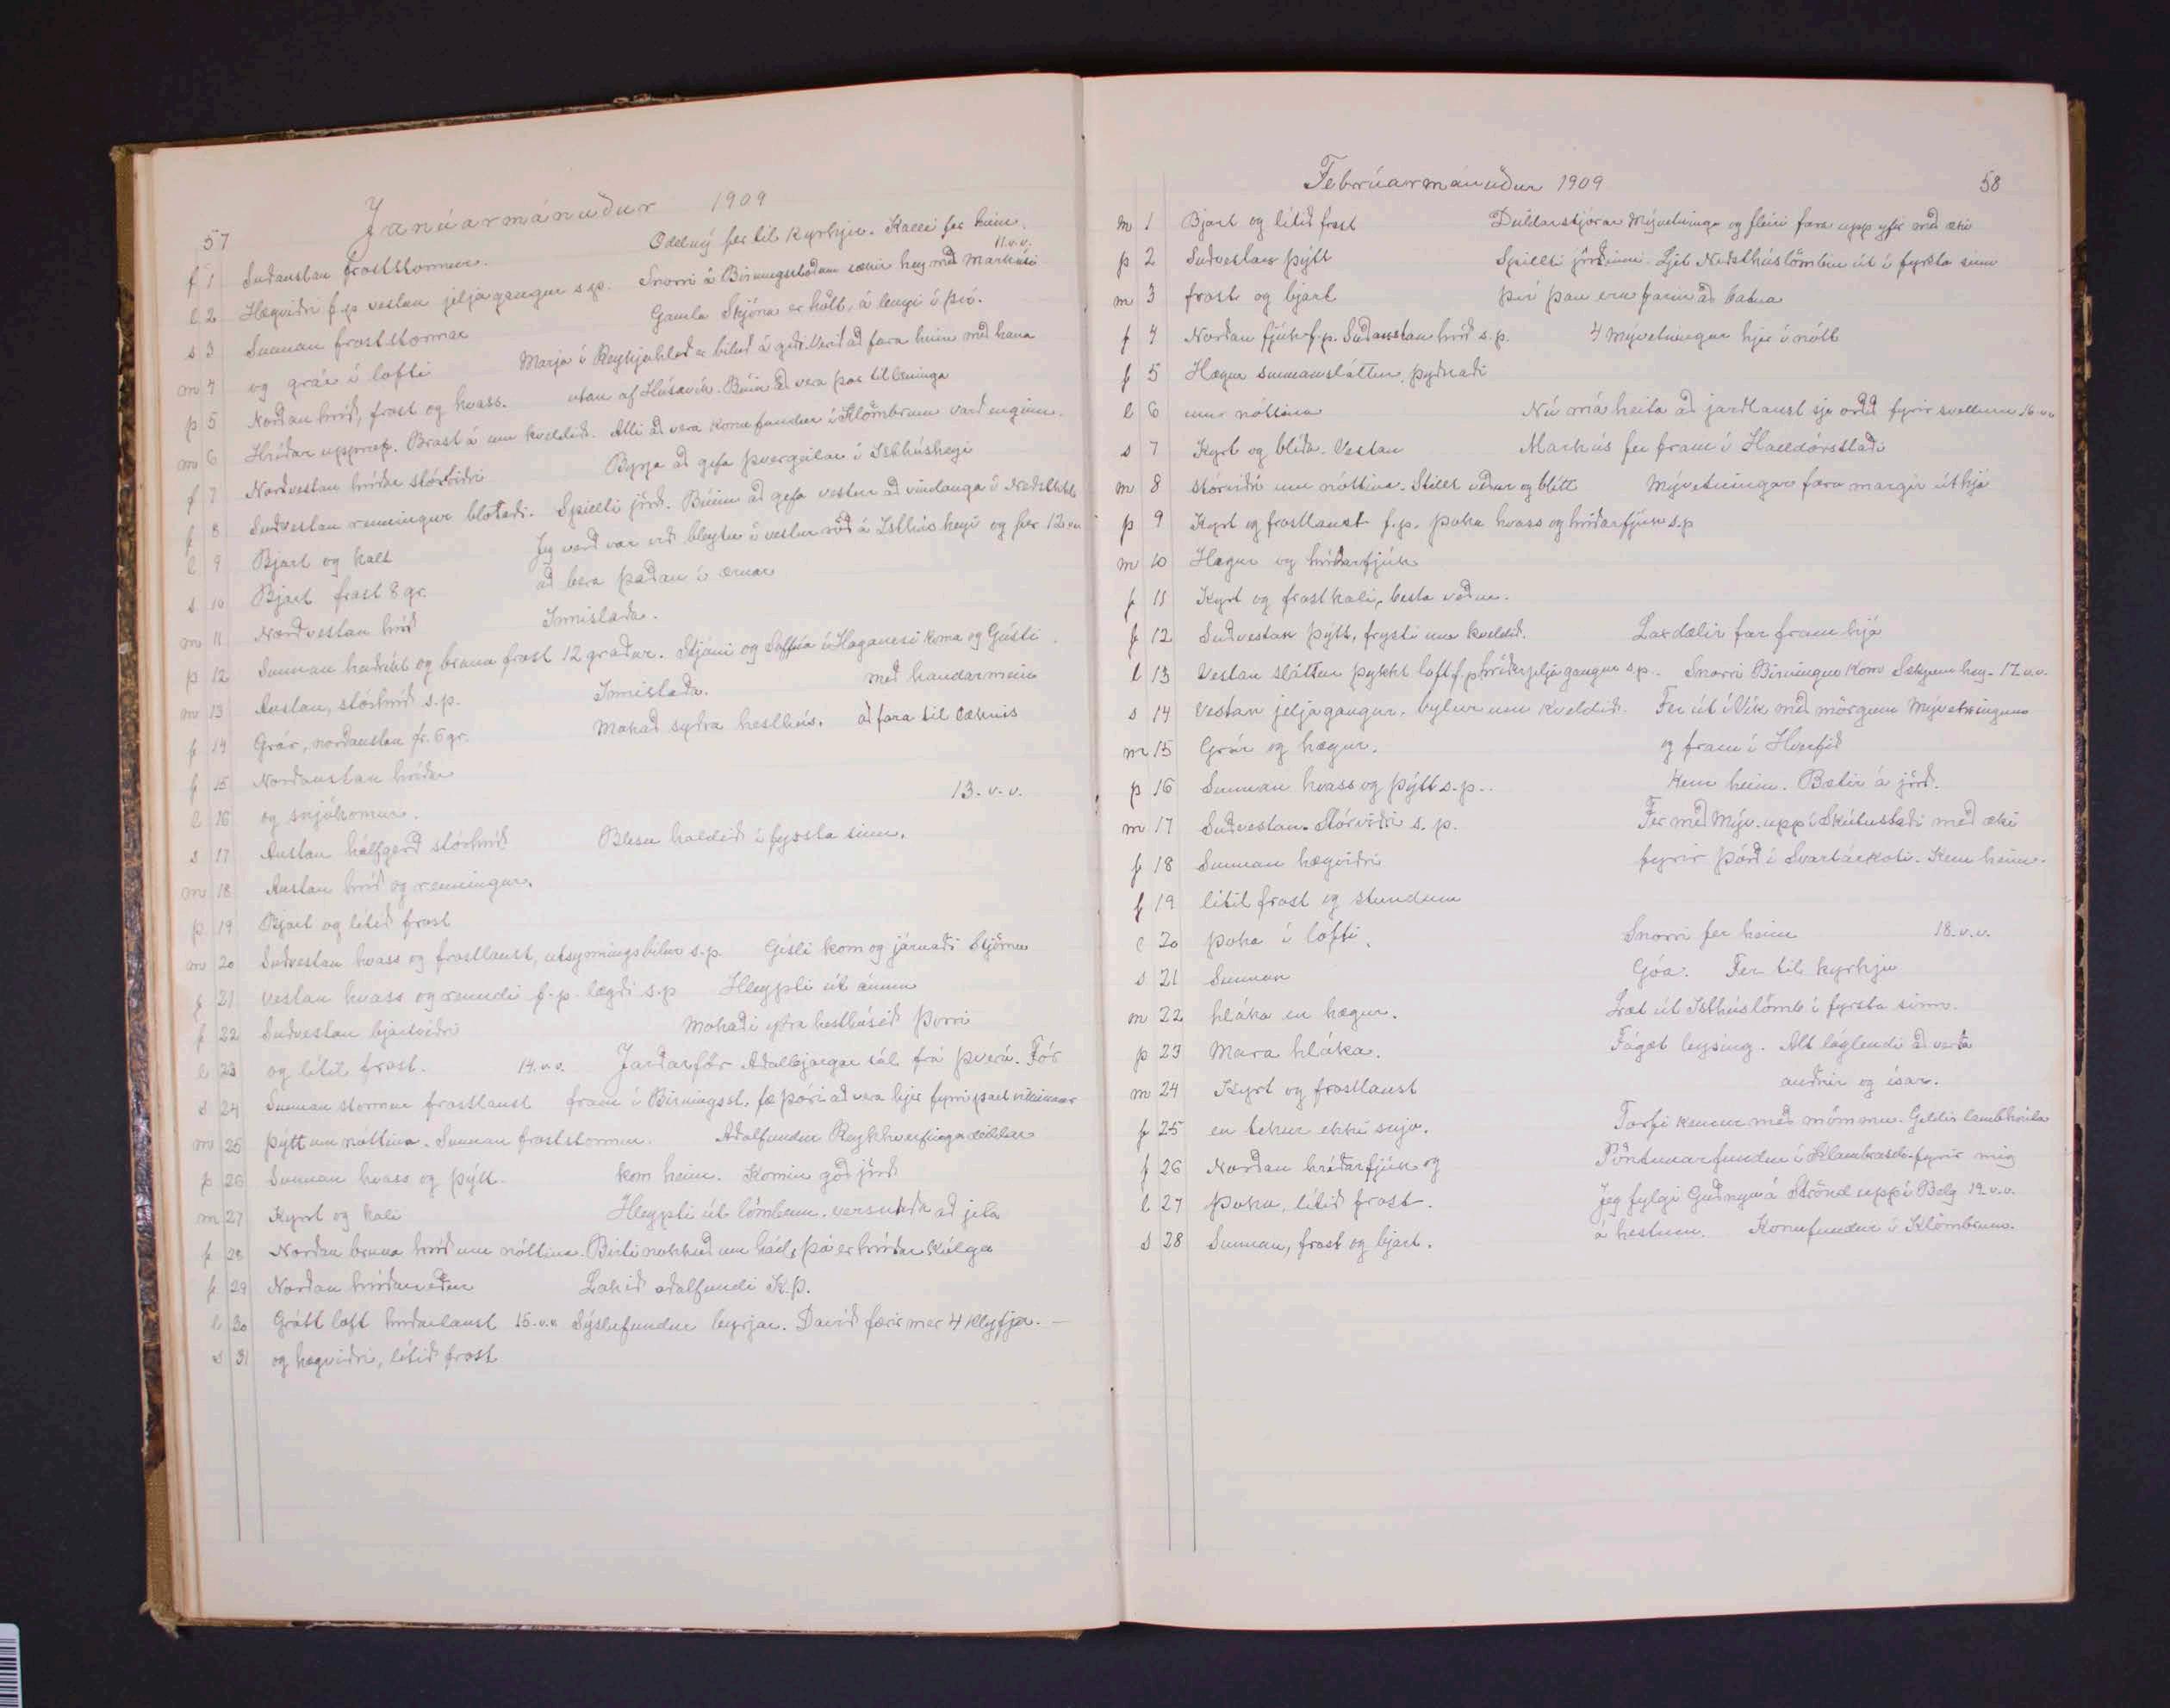 57 Janúarmánuður 1909
f 1 Suðaustan froststormur. Oddný fer til kyrkju. Kalli fer heim.
l 2 Hægviðri f.p. vestan jeljagangur s.p. Snorri á Birningsstöðum sækir hey með Markúsi 11. v.v.
s 3 Sunnan froststormar Gamla Skjóna er hölt, á lengi í því.
m 4 og grár í lofti Marja í Reykjahlíð er biluð á geði. Verið að fara heim með hana
þ 5 Norðan hríð, frost og hvass. utan af Húsavík. Búin að vera þar til lækninga
m 6 Hríðar upprof. Brast á um kveldið. Átti að vera konufundur í Klömbrum varð enginn.
f 7 Norðvestan hríðar stórviðri Byrja að gefa þvergeilar í Isthúsheyi
f 8 Suðvestan renningur blotaði. Spillti jörð. Búinn að gefa vestur að vindauga í Neðsthh
l 9 Bjart og kalt Jeg varð var við bleytu í vestur röð á Isthús heyi og fer 12 v.v
s 10 Bjart frost 8 gr. að bera þaðan í ærnar
m 11 Norðvestan hríð Innistaða.
þ 12 Sunnan heiðríkt og bruna frost 12 gráður. Stjáni og Soffía í Haganesi koma og Gústi
m 13 Austan, stórhríð s.p. Innistaða. með handarmein
f 14 Grár, norðaustan fr. 6 gr. Mokað syðra hesthús. að fara til læknis
f 15 Norðaustan hríðar
l 16 og snjókomur. 13. v.v.
s 17 Austan hálfgerð stórhríð Blesu haldið í fyrsta sinn.
m 18 Austan hríð og renningur.
þ 19 Bjart og lítið frost
m 20 Suðvestan hvass og frostlaust, útsynningsbilur s.p. Gísli kom og járnaði Stjörnu
f 21 Vestan hvass og renndi f.p. lægði s.p Hleypti út ánum
f 22 Suðvestan bjartviðri Mokaði ytra hesthúsið Þorri
l 23 og lítil frost. 14. v.v. Jarðarför Aðalbjargar sál. frá Þverá. Fór
s 24 Sunnan stormur frostlaust fram í Birningsst. fæ Þóri að vera hjer fyrripart vikunnar
m 25 þýtt um nóttina. Sunnan froststormur. Aðalfundur Reykhverfingadeildar
þ 26 Sunnan hvass og þýtt. kom heim. Komin góð jörð
m 27 Kyrt og kali Hleypti út lömbum.
f 28 Norðan bruna hríð um nóttina. Birti nokkuð um hád, þá er hríðar kólga
f 29 Norðan hríðarveður Lokið aðalfundi K.Þ.
l 30 Grátt loft hríðarlaust 15. v.v Sýslufundur byrjar. Davíð færir mér 4 klyfjar. —
s 31 og hægviðri, lítið frost
Febrúarmánuður 1909 58
m 1 Bjart og lítið frost Deildarstjórar Mývetninga og fleiri fara upp yfir með æki
þ 2 Suðvestan þýtt Spillti jörðinni. Ljet Neðsthúslömbin út í fyrsta sinn
m 3 frost og bjart því þau eru farin að batna
f 4 Norðan fjúk f.p. Suðaustan hríð s.p. 4 Mývetningar hjer í nótt
f 5 Hægur sunnansláttur, þyðnaði
l 6 um nóttina Nú má heita að jarðlaust sje orðið fyrir svellum 16 v.v
s 7 Kyrt og blíða. Vestan Markús fer fram í Halldórsstaði
m 8 stórviðri um nóttina. Stillt veður og blítt Mývetningar fara margir út hjá
þ 9 Kyrt og frostlaust f.p. Þoka hvass og hríðarfjúk s.p
m 10 Hægur og hríðarfjúk
f 11 Kyrt og frostkali, besta veður.
f 12 Suðvestan þýtt, frysti um kveldið. Laxdælir far fram hjá
l 13 Vestan sláttur þykkt loft f.p. hríðarjeljagangur s.p. Snorri Birningur kom Sækjum hey. 17 v.v.
s 14 Vestan jeljagangur, bylur um kveldið. Fer út í Vík með mörgum Mývetningum
m 15 Grár og hægur. og fram í Hverfið
þ 16 Sunnan hvass og þýtt s.p. Kem heim. Bætir á jörð.
m 17 Suðvestan. Stórviðri s.p. Fer með Mýv. upp í Skútustaði með æki
f 18 Sunnan hægviðri fyrir Þórð í Svartárkoti. Kem heim.
f 19 lítil frost og stundum
l 20 þoka í lofti. Snorri fer heim 18. v.v.
s 21 Sunnan Góa. Fer til kyrkju
m 22 hláka en hægur. Læt út Isthúslömb í fyrsta sinn.
þ 23 Mara hláka. Fágæt leysing. Alt láglendi að verða
m 24 Kyrt og frostlaust auðnir og ísar.
f 25 en tekur ekki snjó. Torfi kemur með mömmu. Geldir lambhrúta
f 26 Norðan hríðarfjúk og Pöntunarfundur í Klambraseli fyrir mig
l 27 þoka, lítið frost. Jeg fylgi Guðnýju á Strönd upp í Belg 19. v.v.
s 28 Sunnan, frost og bjart. á hestum. Konufundur í Klömbrum.